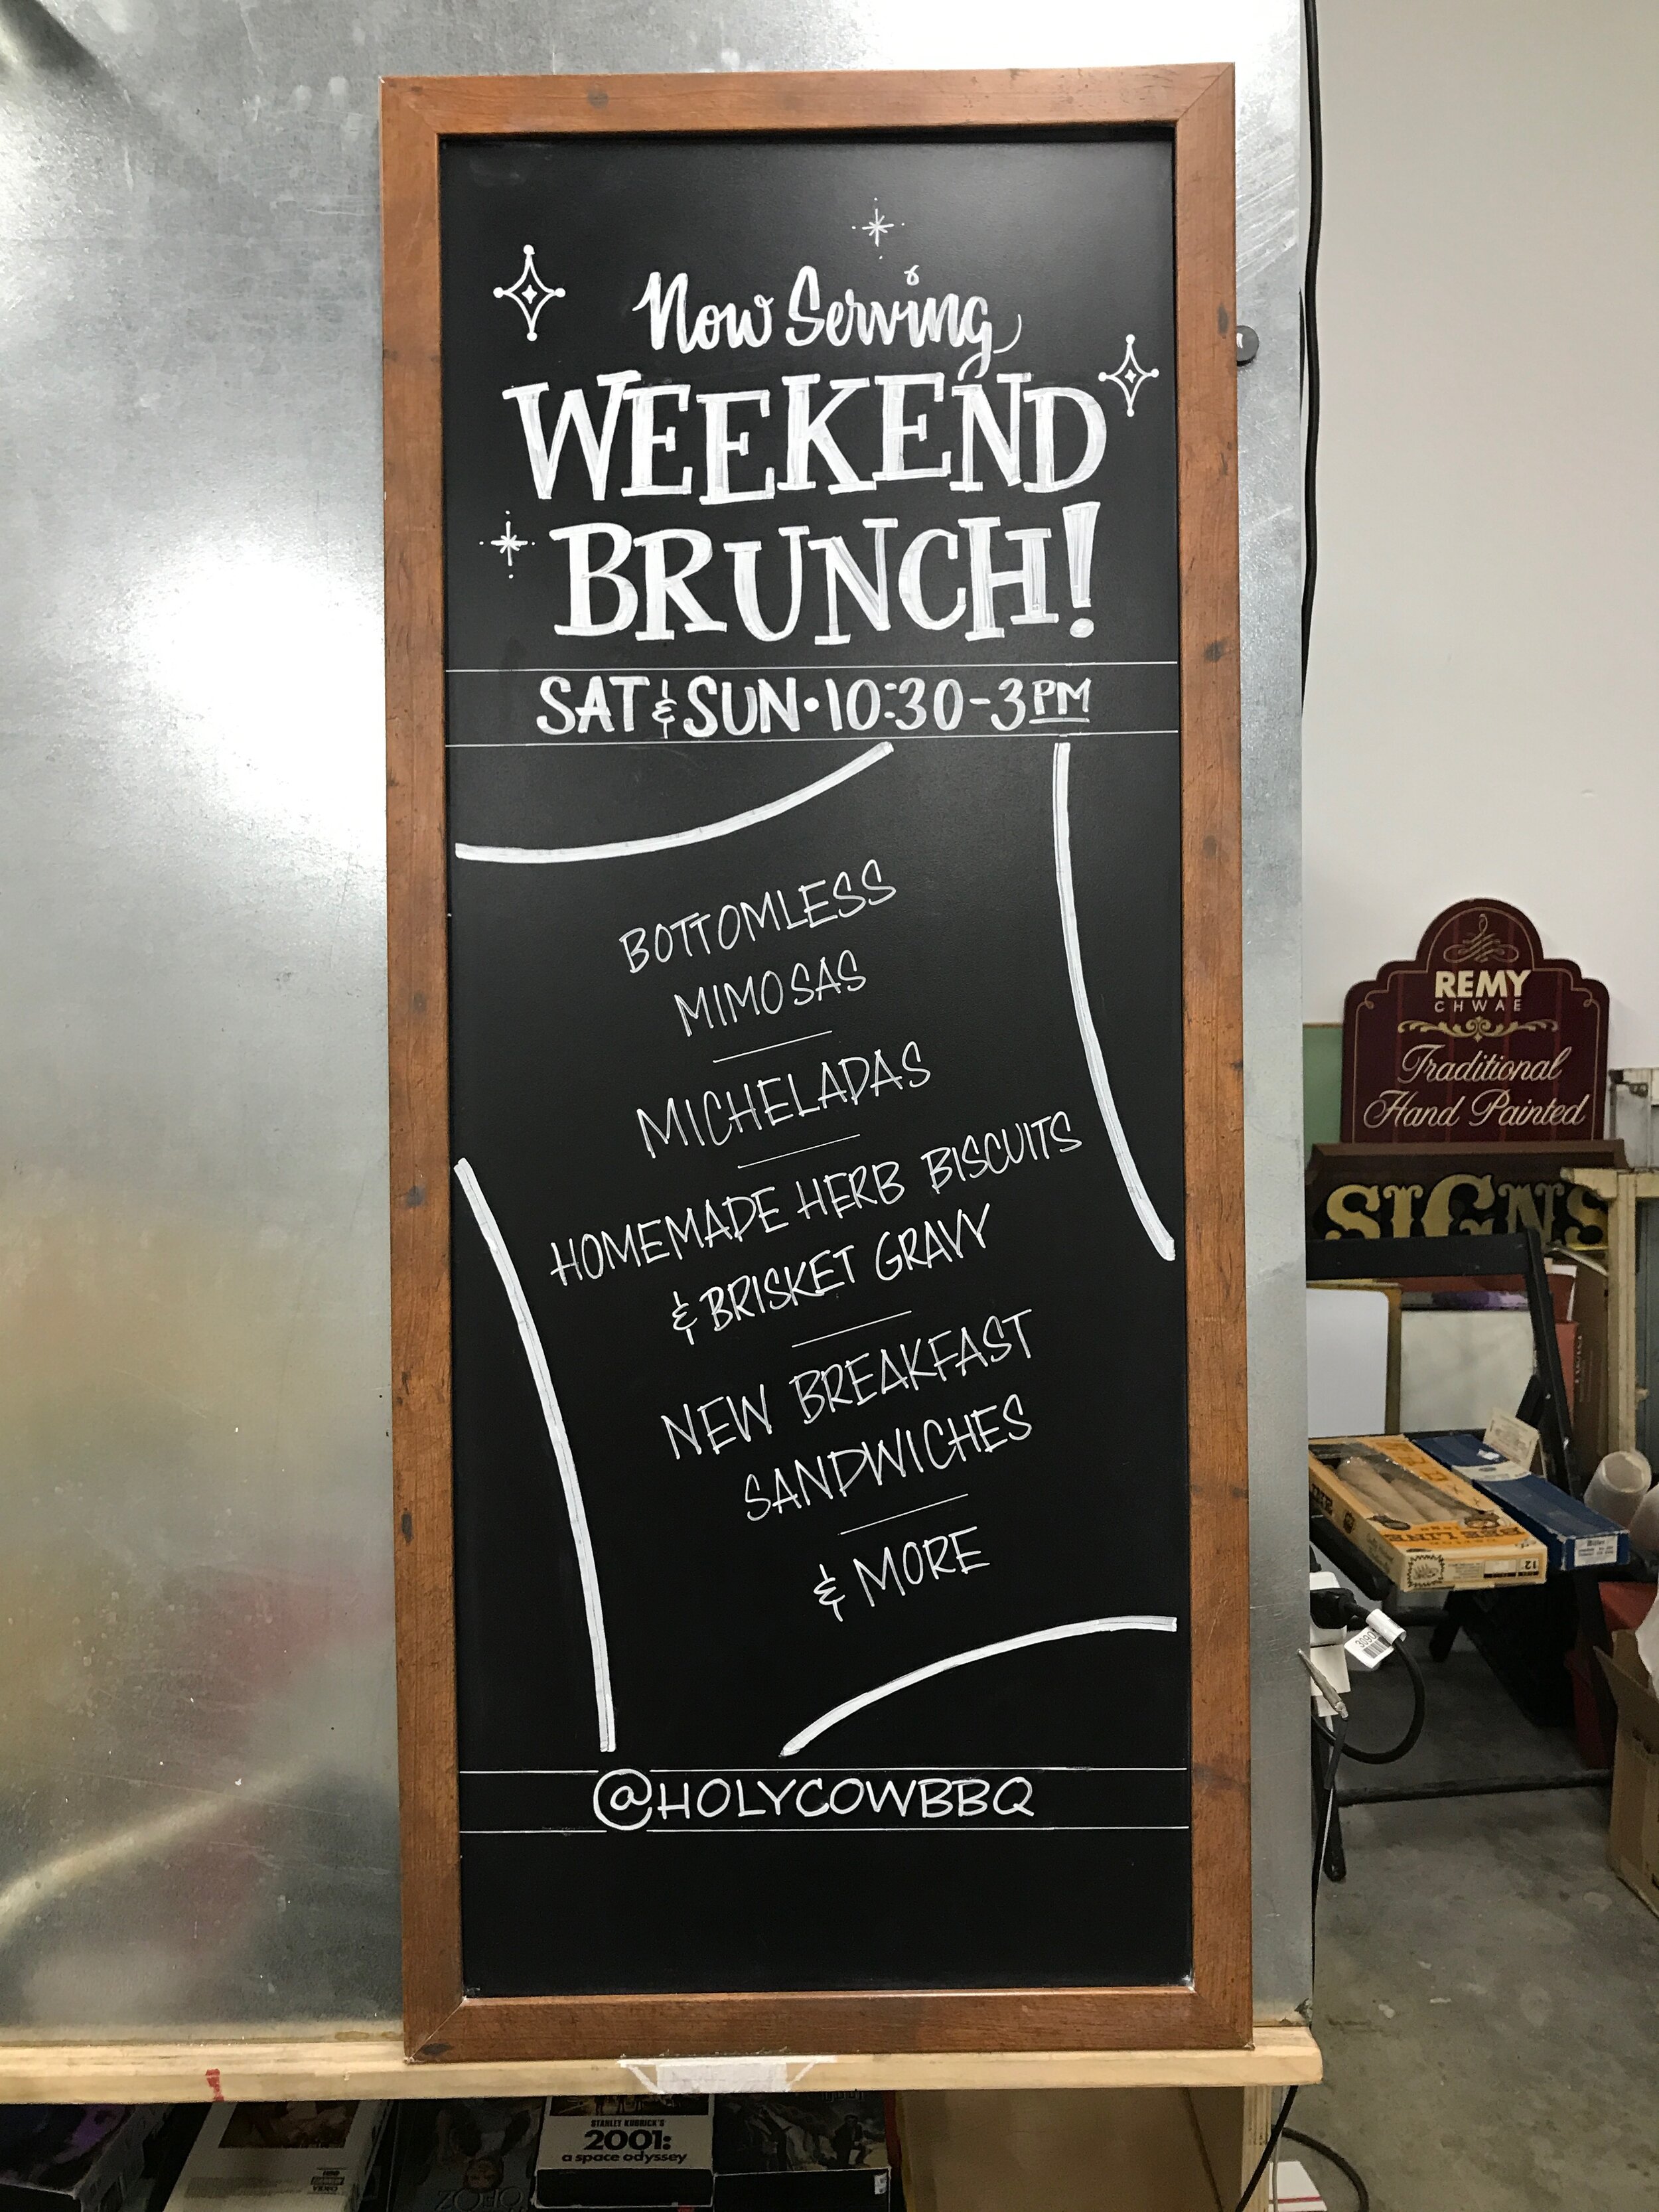 Now Serving
WEEKEND
BRUNCH!
SAT & SUN • 10:30-3PM
BOTTOMLESS
MIMOSAS
MICHELADAS
HOMEMADE HERB BISCUITS
& BRISKET GRAVY
NEW BREAKFAST
SANDWICHES
& MORE
@HOLYCOWBBQ
REMY
CHWAE
Traditional
Hand Painted
SIGNS
STANLEY KUBRICK'S
2001:
a space odyssey